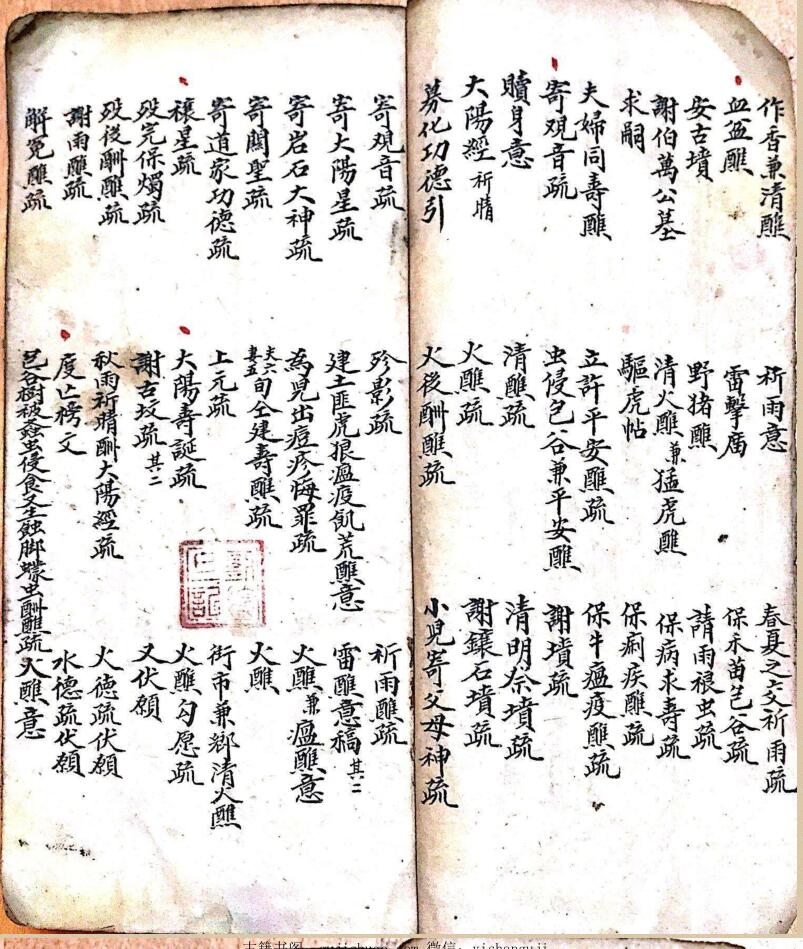 作香兼清醮
血盆醮
安古墳
謝伯萬公墓
求嗣
夫婦同壽醮
寄观音疏
贖身意
大陽經祈晴
募化功德引
祈雨意
雷擊屇
野猪醮
清火醮兼猛虎醮
驅虎帖
立許平安醮疏
虫侵包谷兼平安醮
清醮疏
火醮疏
火後酬醮疏
春夏之交祈雨疏
保禾苗包谷疏
請雨禳虫疏
保病求壽疏
保痢疾醮疏
保牛瘟疫醮疏
謝墳疏
清明奈墳疏
謝鑲石墳疏
小児寄父母神疏
寄观音疏
寄大陽星疏
寄岩石大神疏
寄関聖疏
寄道家功德疏
禳星疏
殁完保燭疏
殁後酬醮疏
謝雨醮疏
解冤醮疏
殄影疏
建土匪虎狼瘟疫飢荒醮意
為児出痘疹悔罪疏
夫六妻五旬仝建壽醮疏
上元疏
大陽壽誕疏
謝古坟疏其二
秋雨祈晴酬大陽經疏
度亡榜文
包谷樹被螽虫侵食又生蝕脚蠓虫酬醮疏
祈雨醮疏
雷醮意稿其二
火醮兼瘟醮意
火醮
街市兼鄉清火醮
火醮勾愿疏
又伏願
火德疏伏願
水德疏伏願
火醮意